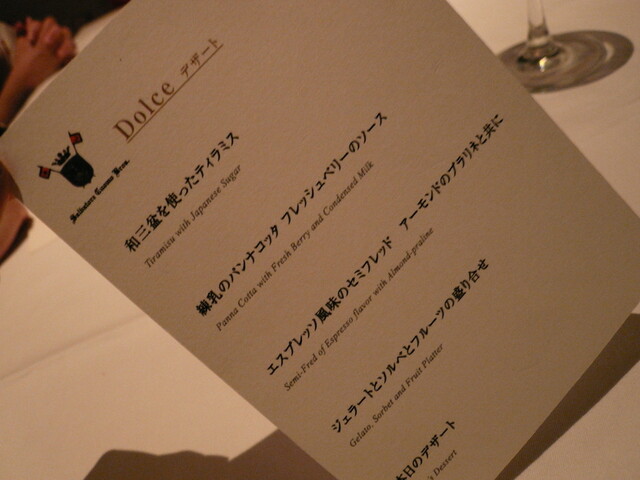 Dolce デザート
Salvatore Cuomo Bros.
和三盆を使ったティラミス
Tiramisu with Japanese Sugar
練乳のパンナコッタ フレッシュベリーのソース
Panna Cotta with Fresh Berry and Condensed Milk
エスプレッソ風味のセミフレッド アーモンドのプラリネと共に
Semi-Fred of Espresso flavor with Almond-praline
ジェラートとソルベとフルーツの盛り合せ
Gelato, Sorbet and Fruit Platter
本日のデザート
Dessert